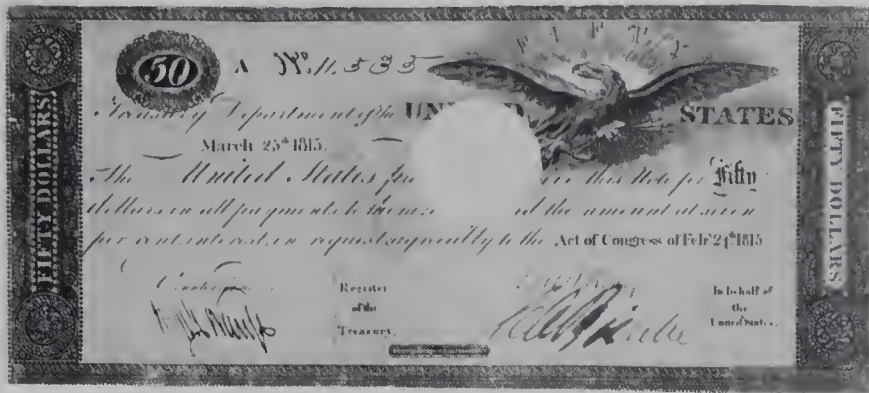 FIFTY
50 A No. 11.535
Treasury Department of the UNITED STATES
March 25th 1815.
The United States this Note for Fifty
dollars in all payments to them the amount at seven
per cent. interest on request agreeably to the Act of Congress of Feby 24th 1815
Register
of the
Treasury.
In behalf of
the
United States.
FIFTY DOLLARS
FIFTY DOLLARS